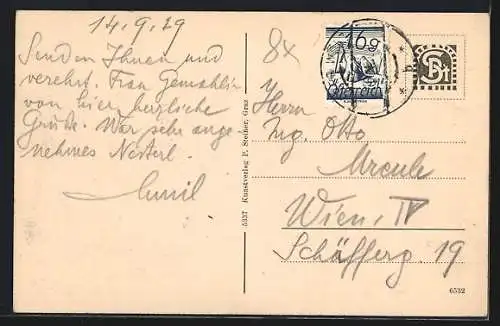 14.9.29
Senden Ihnen und
verehrt. Frau Gemahlin
von hier herzliche
Grüße. War sehr ange-
nehmes Nesterl.
Emil
5937 Kunstverlag F. Stedler, Graz
8x
16 g
Österreich
Herrn
Ing. Otto
Wien, IV
Schäfferg. 19
6532